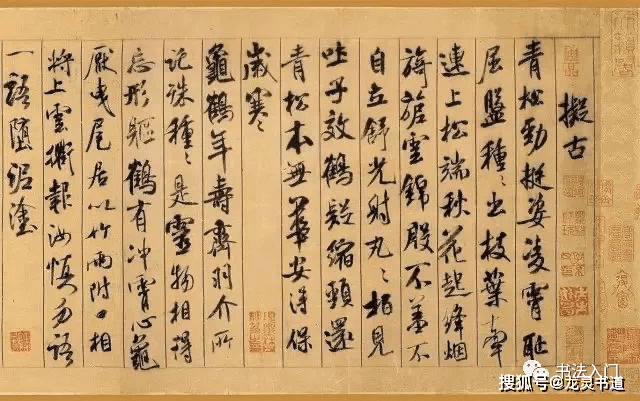 擬古
青松勁挺姿凌霄恥
屈盤種々出枝葉牽
連上松端秋花起絳烟
旖旎雲錦殷不羞不
自立舒光射丸々柏見
吐子效鶴疑縮頸還
青松本無華安得保
歲寒
龜鶴年壽齊羽介所
託殊種々是靈物相得
忘形軀鶴有冲霄心龜
厭曳尾居以竹兩附口相
將上雲衢報汝慎勿語
一語墮泥塗
书法入门
搜狐号@龙灵书道